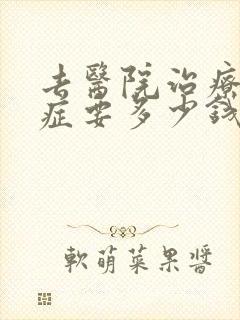 去醫院治療
症要多少錢
軟萌菜果醬